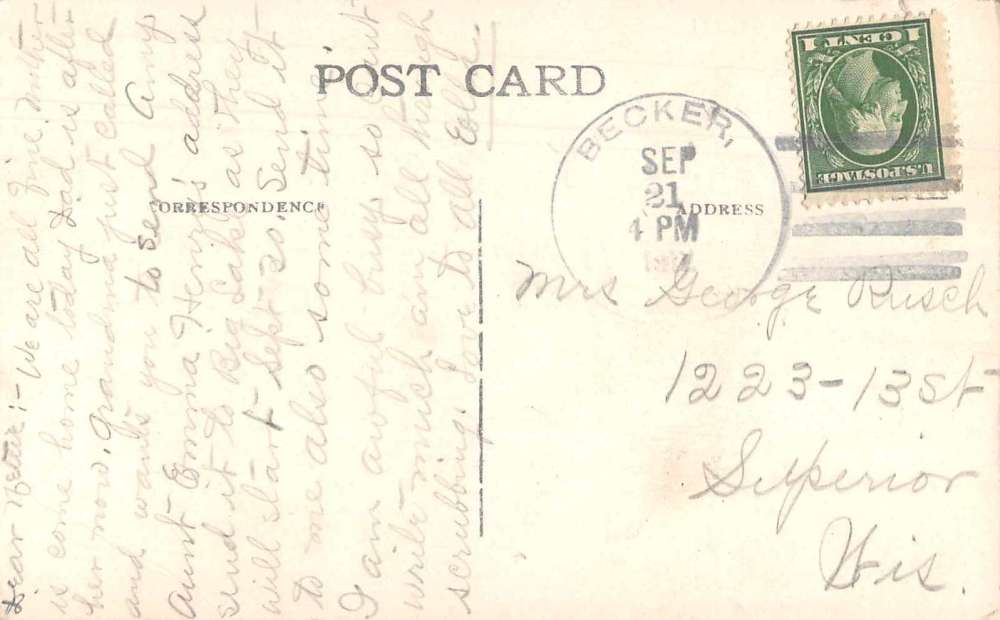 POST CARD
CORRESPONDENCE
ADDRESS
1 CENT 1
U.S. POSTAGE
BECKER,
SEP
21
4 PM
Mrs George Rusch
1223-13 St
Superior
Wis.
Dear :- We are all fine. Mother
is come home today Dad is after
her now. Grandma just called
and wants you to send Amy
Aunt Emma Henzi's address
send it to Big Lake as they
will start Sept 30. Send it
to me also some time
I am awful busy so can't
write much am all through
scrubbing. Love to all